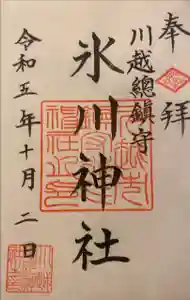 奉拝
川越總鎮守
氷川神社
令和五年十月二日